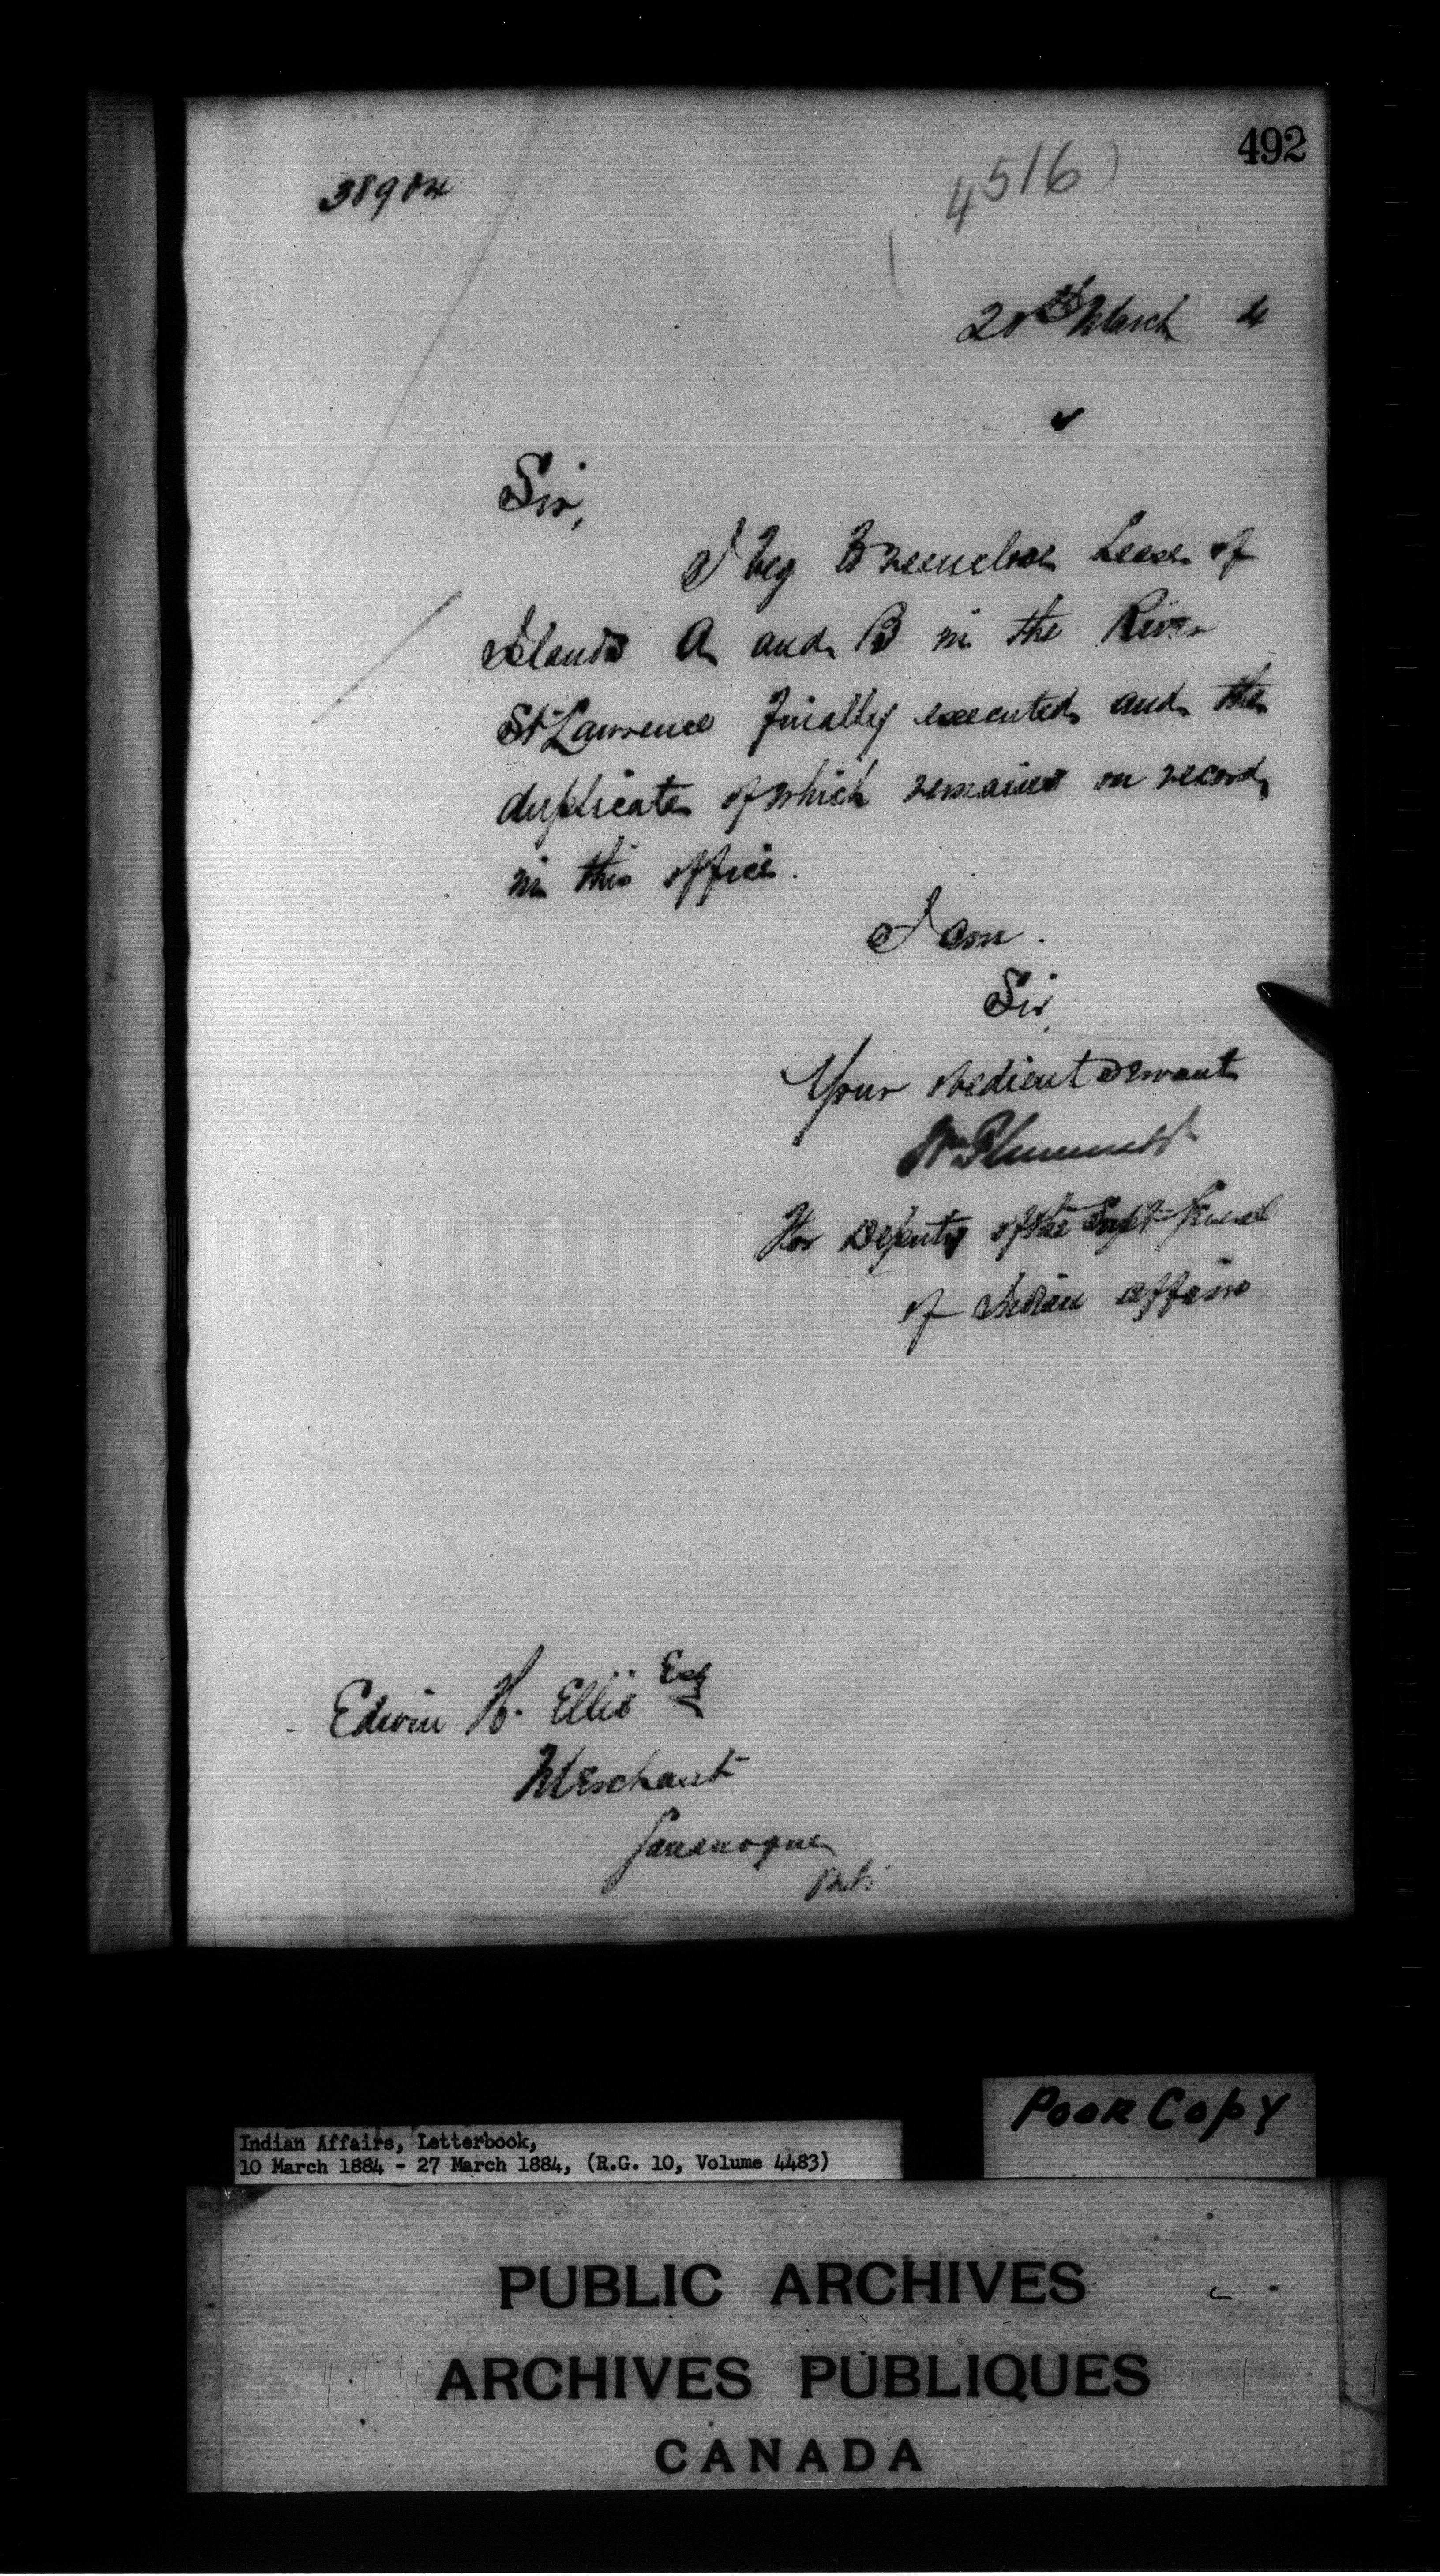 492
38904
4516
20th March 4
Sir,
I beg to reenclose Lease of
Islands A and B in the River
St Lawrence finally executed and the
duplicate of which remains on record
in this office.
I am.
Sir
Your obedient servant
Wm Plummer
For Deputy of the Supt General
of Indian Affairs
Edwin H. Ellis Esq
Merchant
Gananoque
Indian Affairs, Letterbook,
10 March 1884 - 27 March 1884, (R.G. 10, Volume 4483)
POOR COPY
PUBLIC ARCHIVES
ARCHIVES PUBLIQUES
CANADA